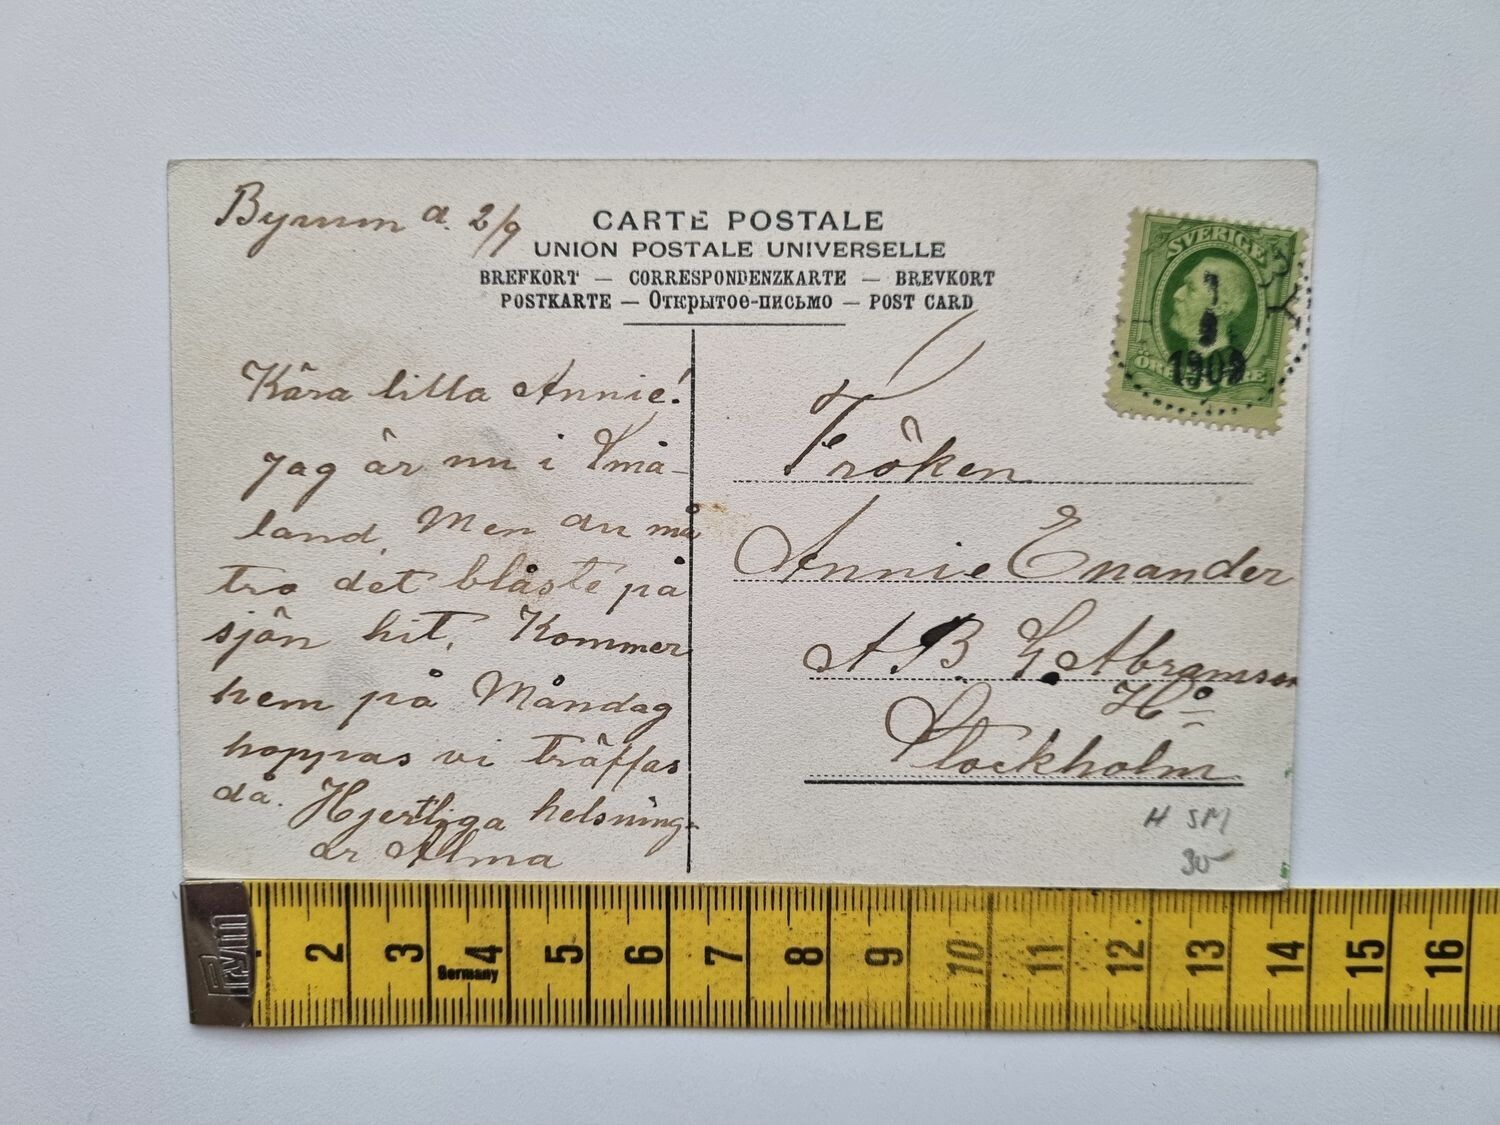 Byrum d. 2/9
CARTE POSTALE
UNION POSTALE UNIVERSELLE
BREFKORT — CORRESPONDENZKARTE — BREVKORT
POSTKARTE — Открытое-письмо — POST CARD
SVERIGE
1909
Kära lilla Annie!
Jag är nu i Små-
land. Men du må
tro det blåste på
sjön hit. Kommer
hem på Måndag
hoppas vi träffas
då. Hjertliga helsning-
ar Alma
Fröken
Annie Enander
AB. G. Abramson
Stockholm
H SM
Prym
2 3 4 5 6 7 8 9 10 11 12 13 14 15 16
Germany